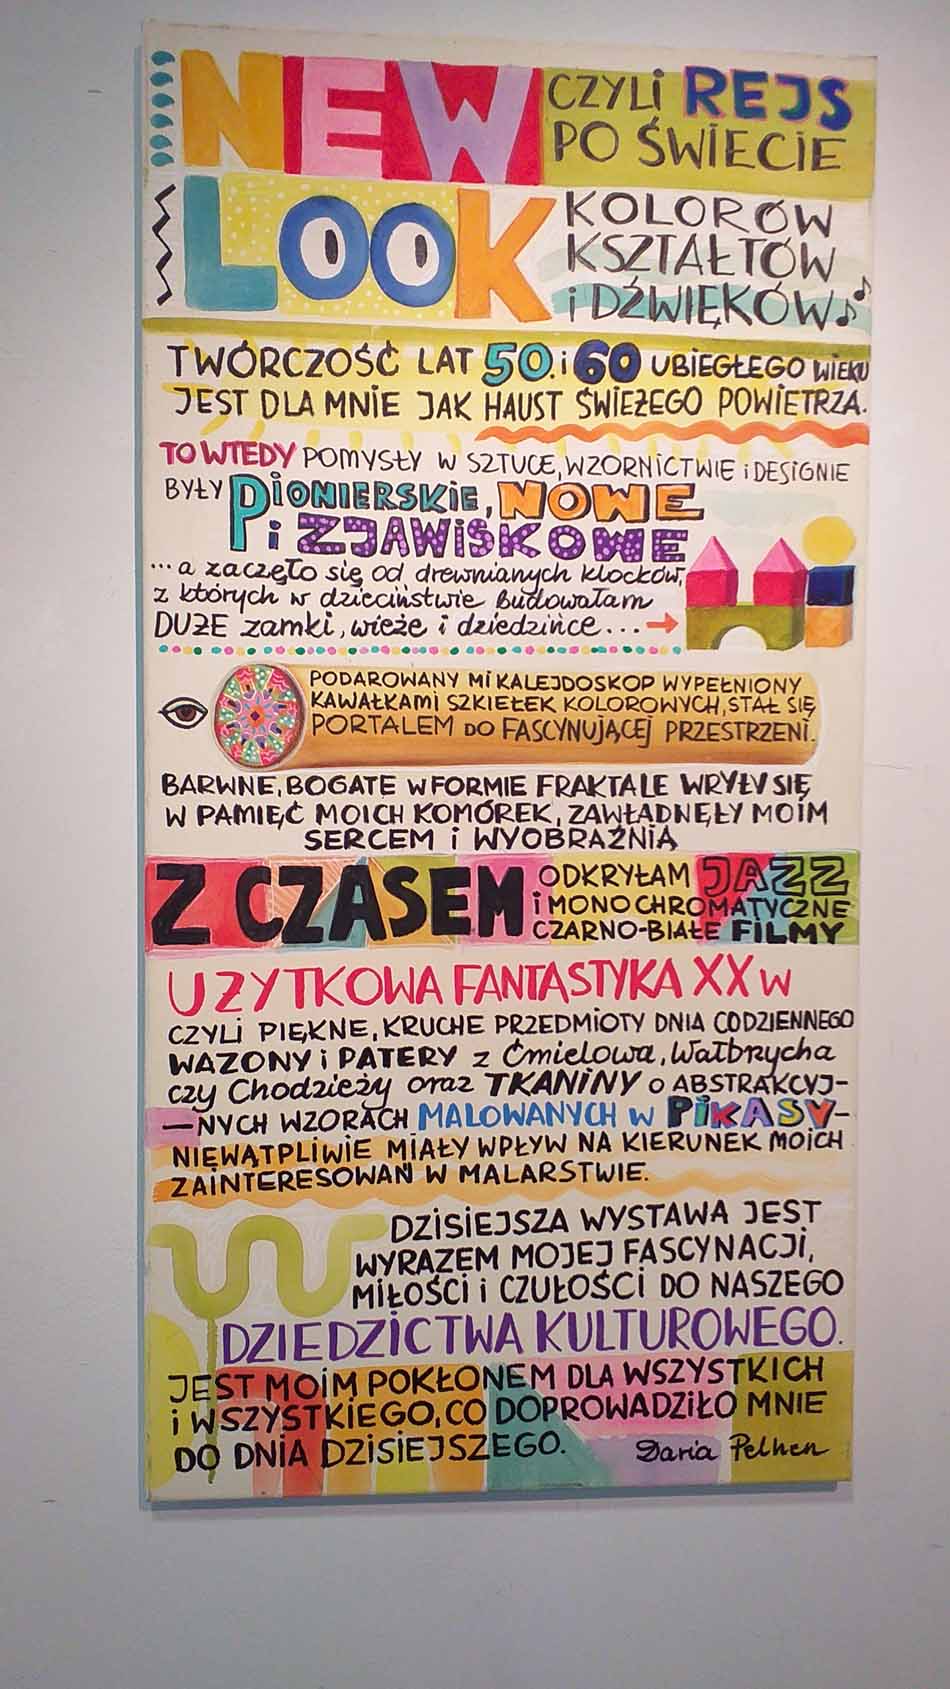 NEW CZYLI REJS
PO ŚWIECIE
LOOK KOLORÓW
KSZTAŁTÓW
i DŹWIĘKÓW
TWÓRCZOŚĆ LAT 50. i 60 UBIEGŁEGO WIEKU
JEST DLA MNIE JAK HAUST ŚWIEŻEGO POWIETRZA.
TO WTEDY POMYSŁY W SZTUCE, WZORNICTWIE i DESIGNIE
BYŁY PIONIERSKIE, NOWE
i ZJAWISKOWE
...a zaczęło się od drewnianych klocków,
z których w dzieciństwie budowałam
DUŻE zamki, wieże i dziedzińce...
PODAROWANY MI KALEJDOSKOP WYPEŁNIONY
KAWAŁKAMI SZKIEŁEK KOLOROWYCH, STAŁ SIĘ
PORTALEM DO FASCYNUJĄCEJ PRZESTRZENI.
BARWNE, BOGATE W FORMIE FRAKTALE WRYŁY SIĘ
W PAMIĘĆ MOICH KOMÓREK, ZAWŁADNĘŁY MOIM
SERCEM i WYOBRAŹNIĄ
Z CZASEM ODKRYŁAM JAZZ
i MONOCHROMATYCZNE
CZARNO-BIAŁE FILMY
UŻYTKOWA FANTASTYKA XX W
CZYLI PIĘKNE, KRUCHE PRZEDMIOTY DNIA CODZIENNEGO
WAZONY i PATERY z Ćmielowa, Wałbrzycha
czy Chodzieży oraz TKANINY o ABSTRAKCYJ-
-NYCH WZORACH MALOWANYCH W PIKASY-
NIEWĄTPLIWIE MIAŁY WPŁYW NA KIERUNEK MOICH
ZAINTERESOWAŃ W MALARSTWIE.
DZISIEJSZA WYSTAWA JEST
WYRAZEM MOJEJ FASCYNACJI,
MIŁOŚCI i CZUŁOŚCI DO NASZEGO
DZIEDZICTWA KULTUROWEGO.
JEST MOIM POKŁONEM DLA WSZYSTKICH
i WSZYSTKIEGO, CO DOPROWADZIŁO MNIE
DO DNIA DZISIEJSZEGO. Daria Pelhen